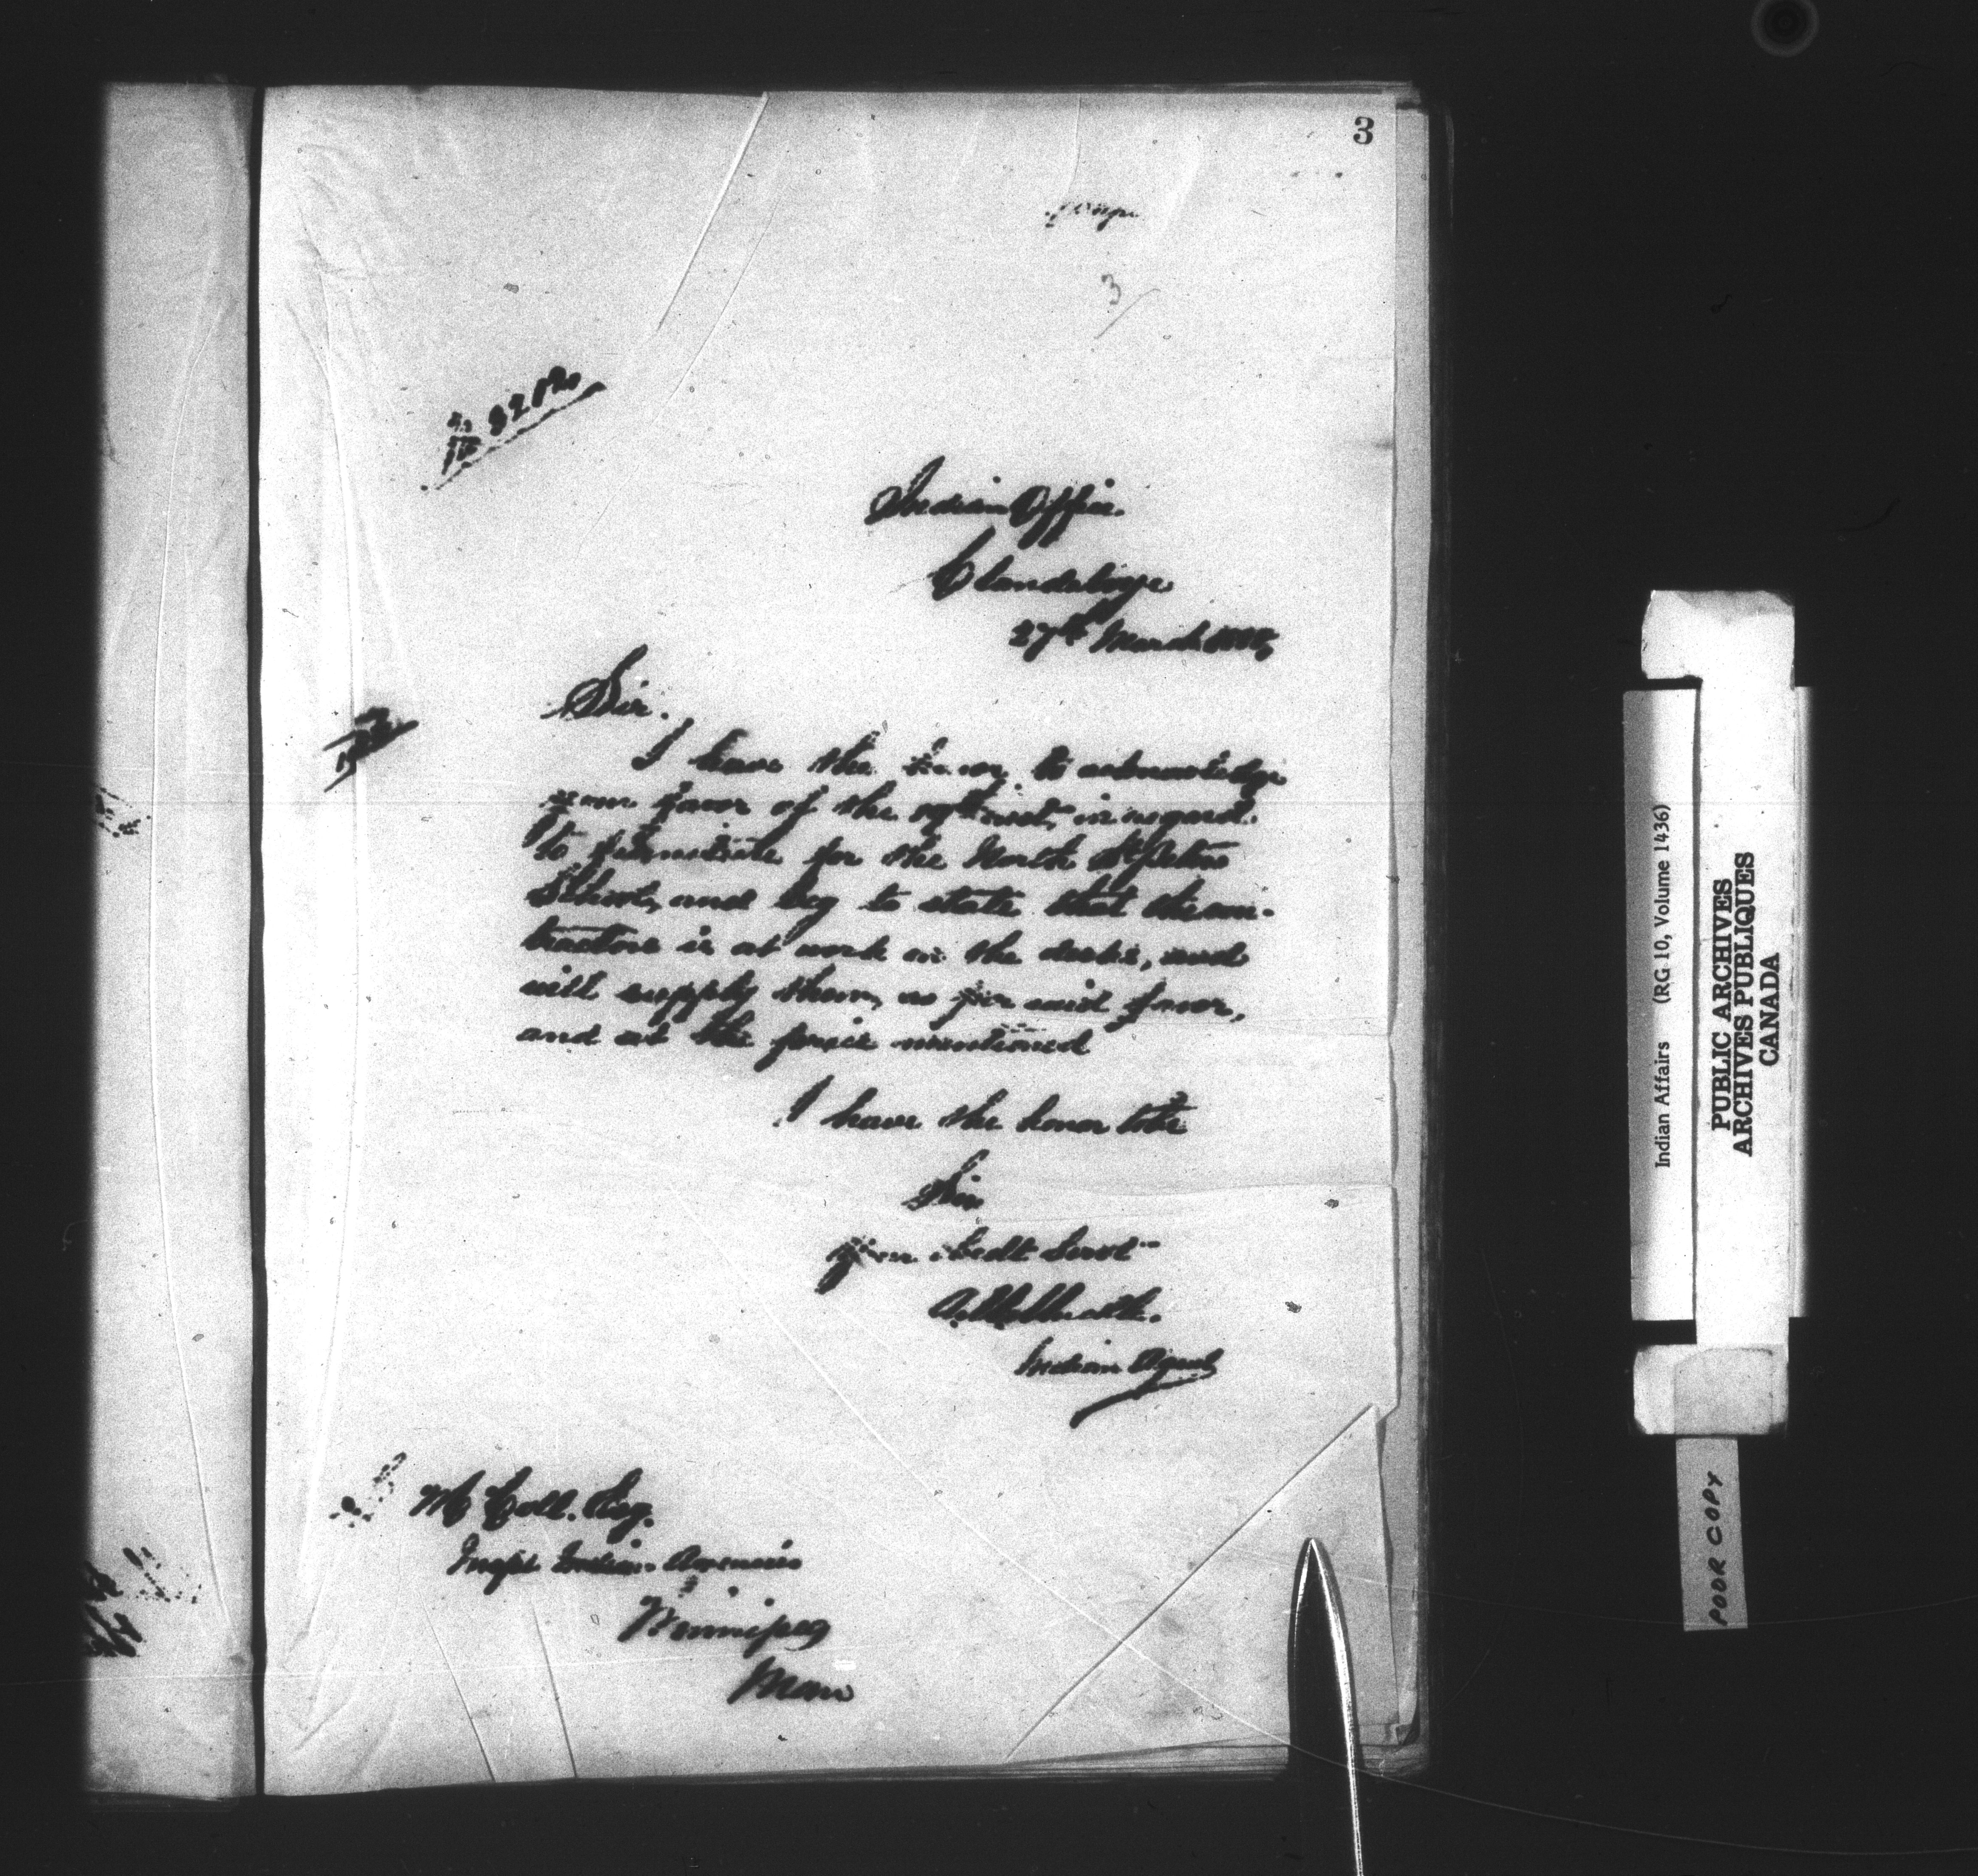 3
3
Indian Office.
Clandeboye
27th March
Sir.
I have the honor to acknowledge
your favor of the inst, in regard
to furniture for the North St Peters
School, and beg to state that the con-
tractor is at work on the desks, and
will supply them, as per said favor,
and at the price mentioned
I have the honor to be
Sir
Your Obedt Servt
Indian Agent
McColl. Esq.
Inspt Indian Agencies
Winnipeg
Man
Indian Affairs (RG 10, Volume 1436)
PUBLIC ARCHIVES
ARCHIVES PUBLIQUES
CANADA
POOR COPY